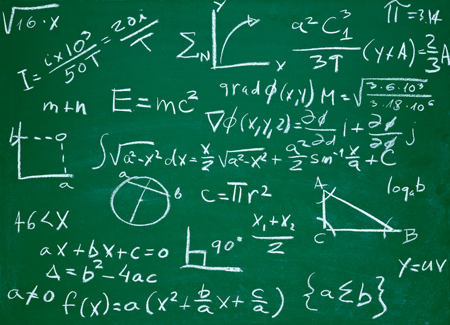 √16·x
I = ix10³/50T = 20i/T
Σ_N
y
x
a²C₁³/3T
π=3.14
(Y+A)=2/3A
m+n
E=mc²
grad φ(x,y)
M=√(3·6·10³/3·18·10⁶)
∇φ(x,y,z)=∂φ/∂d i + ∂φ/∂φ j
b
a
∫√a²-x² dx = x/2 √a²-x² + a²/2 sin⁻¹ x/a + C
a
b
c=πr²
A
C
B
log_a b
46<x
x₁+x₂/2
90°
ax+bx+c=0
Δ=b²-4ac
y=uv
a≠0
f(x)=a(x²+b/a x+c/a)
{aΣb}